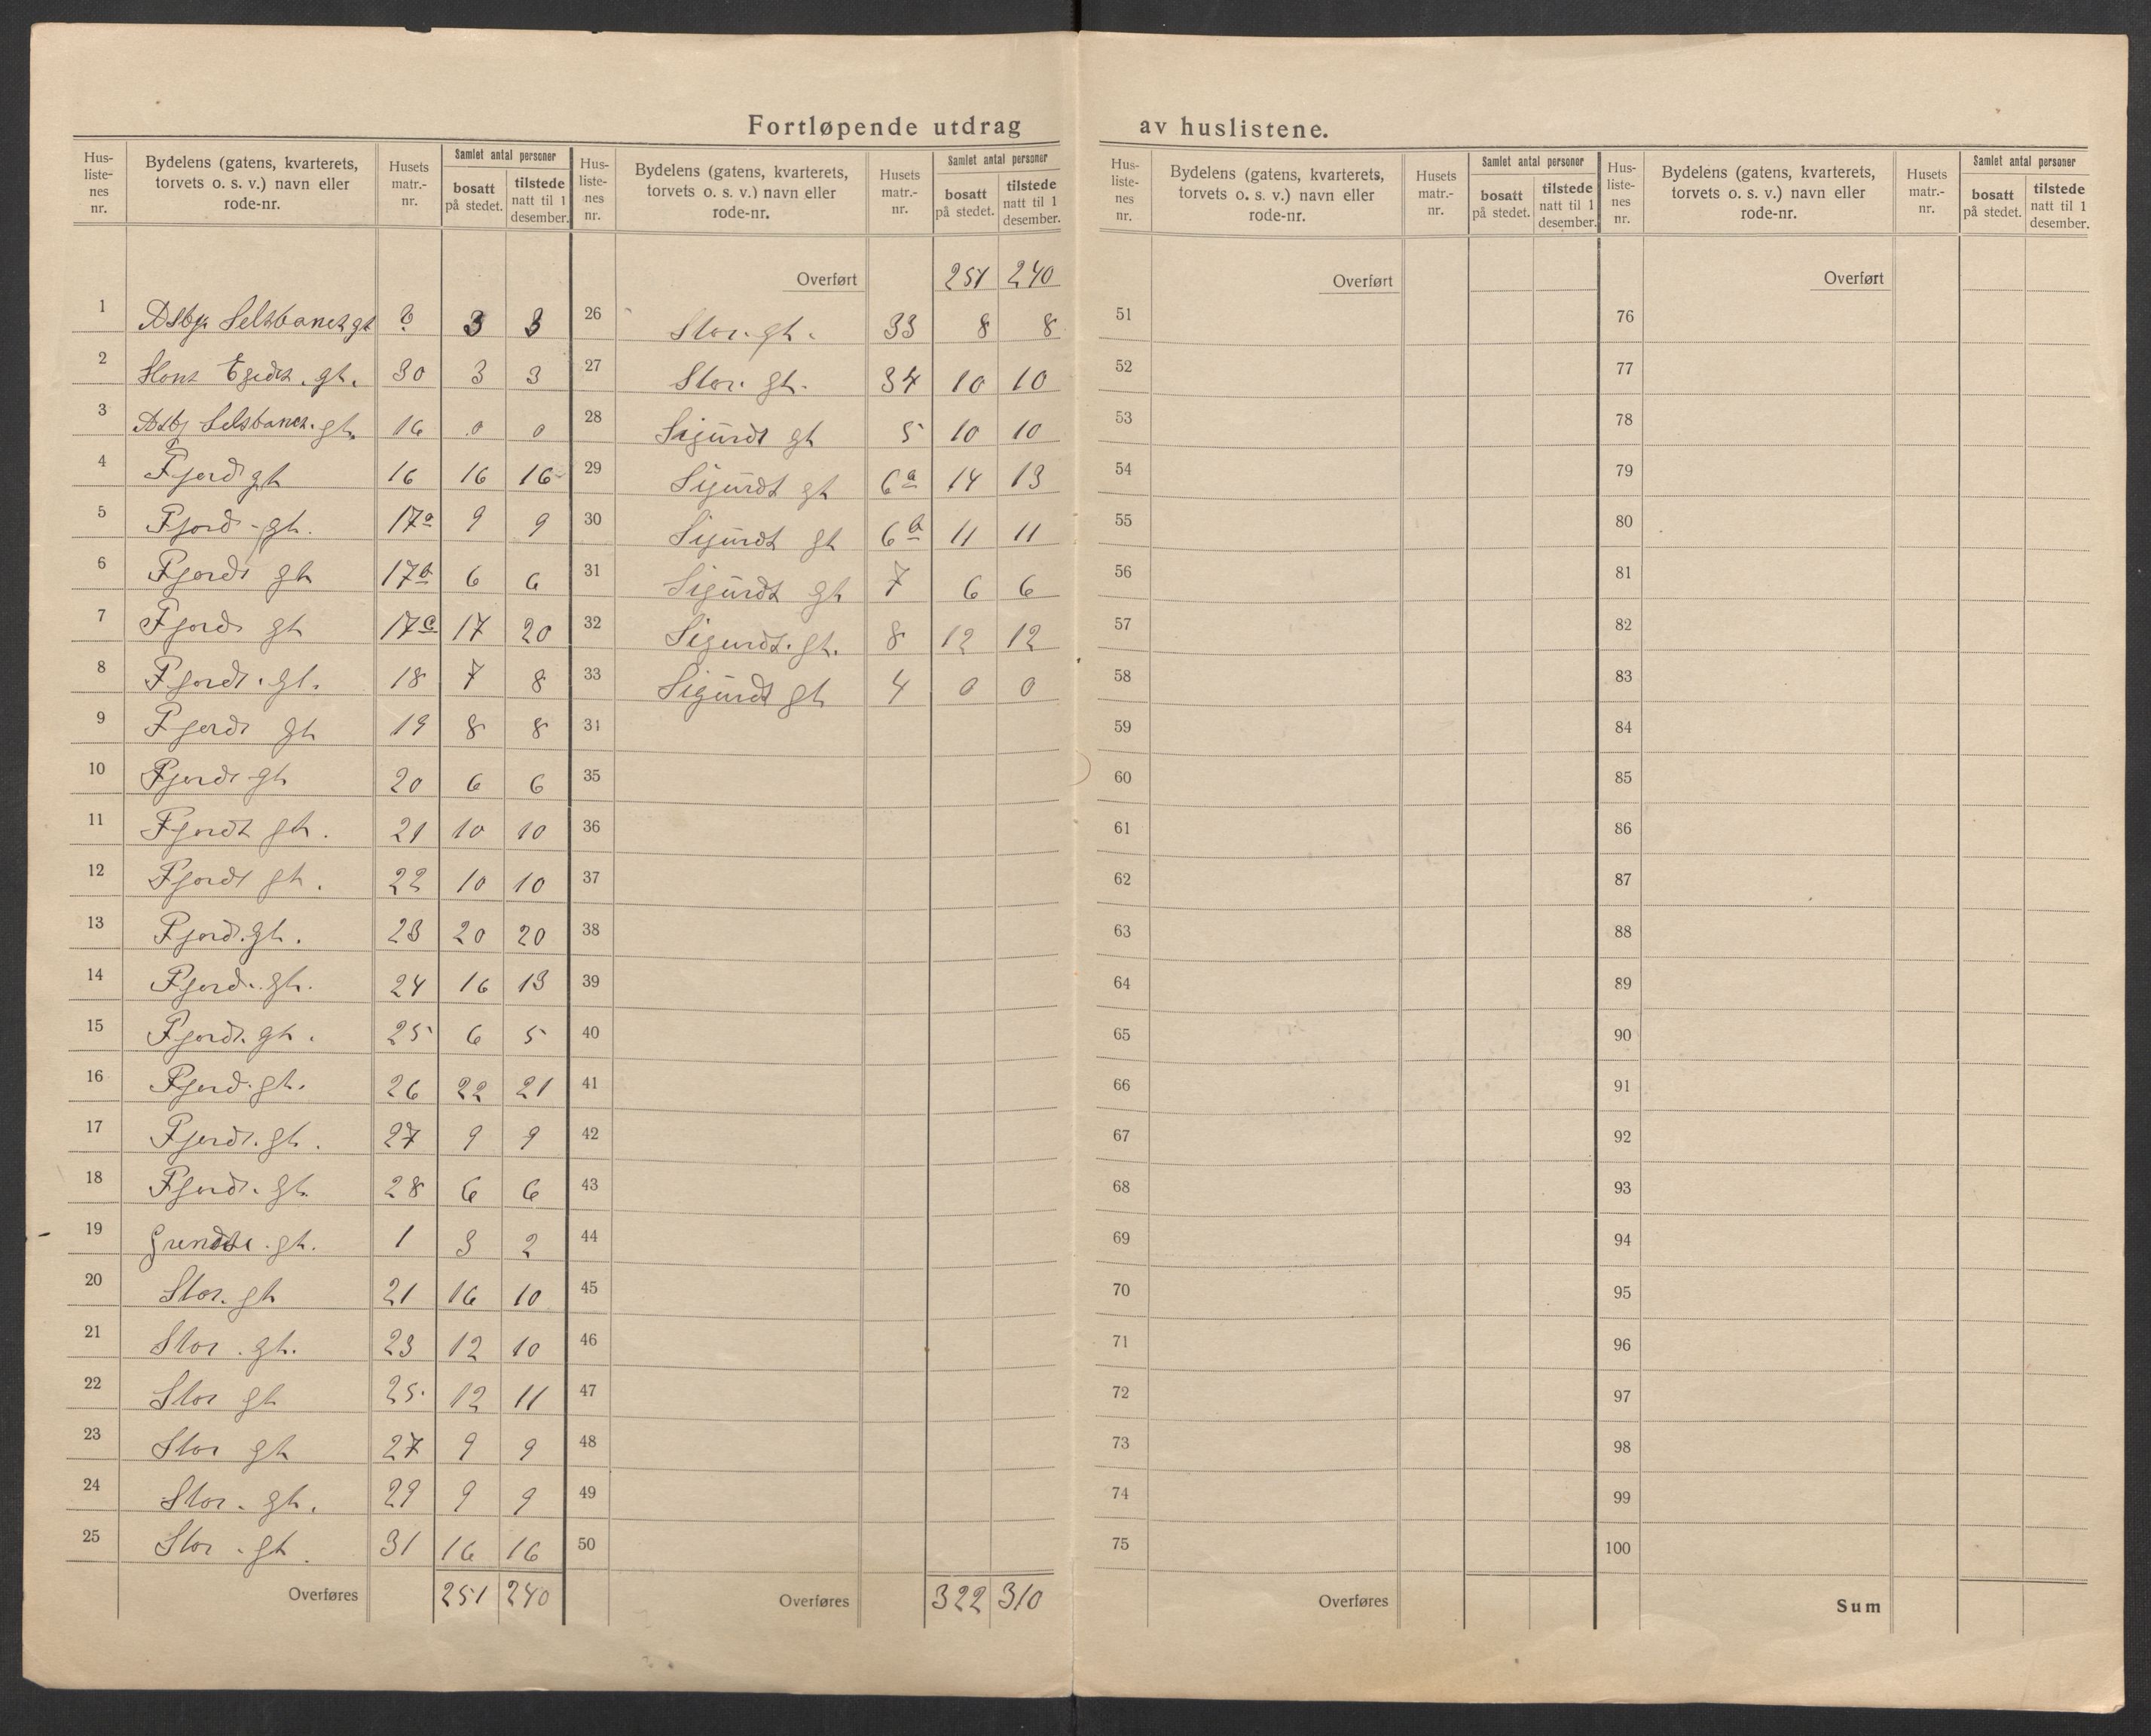 Fortløpende utdrag av huslistene.
Hus-listenes nr. | Bydelens (gatens, kvarterets, torvets o. s. v.) navn eller rode-nr. | Husets matr.-nr. | Samlet antal personer bosatt på stedet. | tilstede natt til 1 desember.
1 Asbjr Selsbanes gt 3 3
2 Hans Egedes. gt. 30 3 3
3 Asbj Selsbanes. gt. 16 0 0
4 Fjord gt 16 16 16
5 Fjord - gt. 17a 9 9
6 Fjord gt 17b 6 6
7 Fjord gt 17c 17 20
8 Fjord. gt. 18 7 8
9 Fjord gt 19 8 8
10 Fjord gt 20 6 6
11 Fjord gt. 21 10 10
12 Fjord gt. 22 10 10
13 Fjord. gt. 23 20 20
14 Fjord. gt. 24 16 13
15 Fjord. gt. 25 6 5
16 Fjord. gt. 26 22 21
17 Fjord. gt. 27 9 9
18 Fjord. gt. 28 6 6
19 gt. 1 3 2
20 Stor. gt 21 16 10
21 Stor. gt. 23 12 10
22 Stor gt 25. 12 11
23 Stor gt 27 9 9
24 Stor. gt. 29 9 9
25 Stor. gt. 31 16 16
Overføres 251 240
Hus-listenes nr. | Bydelens (gatens, kvarterets, torvets o. s. v.) navn eller rode-nr. | Husets matr.-nr. | Samlet antal personer bosatt på stedet. | tilstede natt til 1 desember.
Overført 251 240
26 Stor. gt. 33 8 8
27 Stor. gt. 34 10 10
28 Sigurds gt 5 10 10
29 Sigurds gt 6a 14 13
30 Sigurds gt 6b 11 11
31 Sigurds gt 7 6 6
32 Sigurds. gt. 8 12 12
33 Sigurds gt 4 0 0
34
35
36
37
38
39
40
41
42
43
44
45
46
47
48
49
50
Overføres 322 310
Hus-listenes nr. | Bydelens (gatens, kvarterets, torvets o. s. v.) navn eller rode-nr. | Husets matr.-nr. | Samlet antal personer bosatt på stedet. | tilstede natt til 1 desember.
Overført
51
52
53
54
55
56
57
58
59
60
61
62
63
64
65
66
67
68
69
70
71
72
73
74
75
Overføres
Hus-listenes nr. | Bydelens (gatens, kvarterets, torvets o. s. v.) navn eller rode-nr. | Husets matr.-nr. | Samlet antal personer bosatt på stedet. | tilstede natt til 1 desember.
Overført
76
77
78
79
80
81
82
83
84
85
86
87
88
89
90
91
92
93
94
95
96
97
98
99
100
Sum